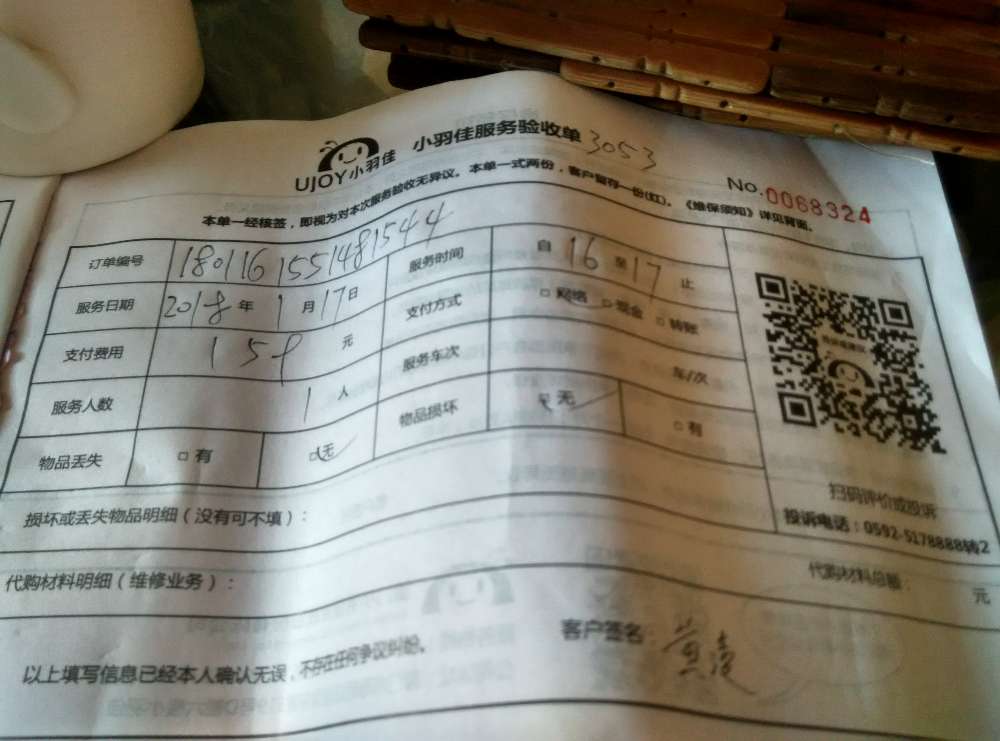 UJOY小羽佳 小羽佳服务验收单 3053
No.0068324
本单一经核签，即视为对本次服务验收无异议。本单一式两份，客户留存一份(红)。《维保须知》详见背面。
订单编号 1801161551481544 服务时间 自 16 至 17 止
服务日期 2018 年 1 月 17 日 支付方式 □ 网络 □ 现金 □ 转账
支付费用 159 元 服务车次 车/次
服务人数 1 人 物品损坏 □ 无 □ 有
物品丢失 □ 有 □ 无
扫码评价或投诉
投诉电话：0592-5178888转2
损坏或丢失物品明细（没有可不填）：
代购材料明细（维修业务）： 代购材料总额： 元
以上填写信息已经本人确认无误，不存在任何争议纠纷。 客户签名：黄